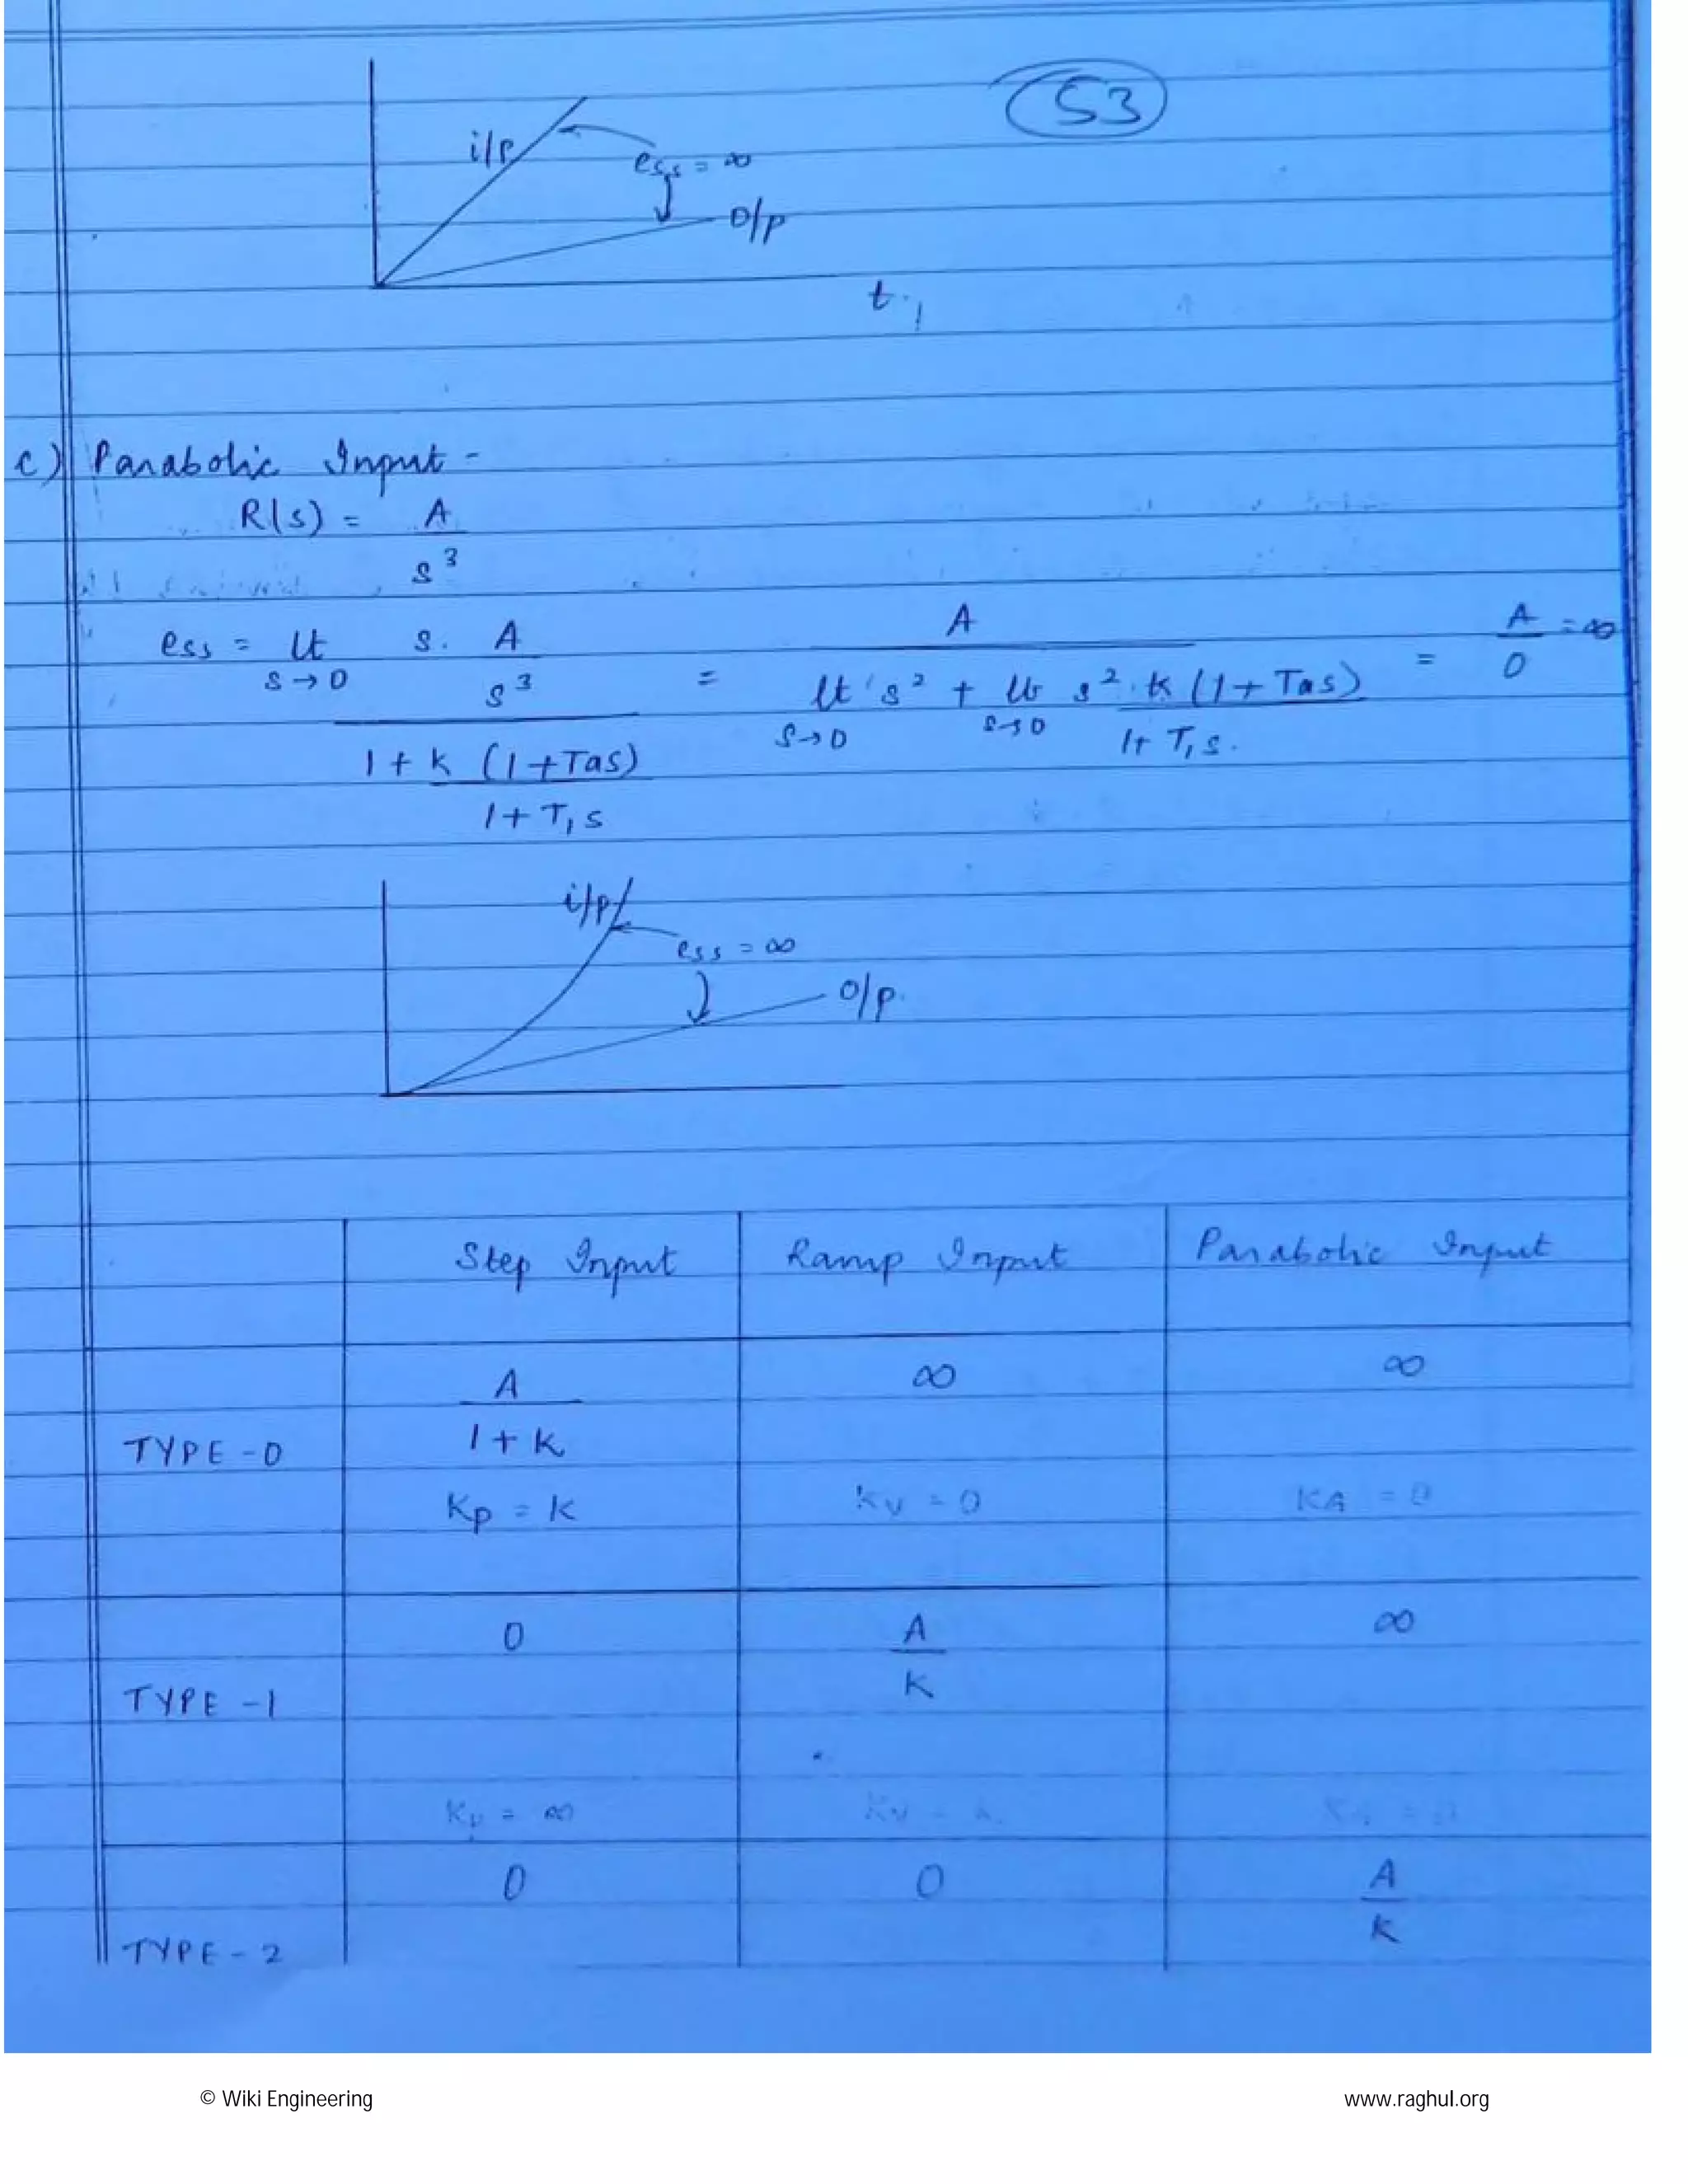 53
i/p
ess = ∞
o/p
t
c) Parabolic Input -
R(s) = A
s³
ess = lt s. A = A = A = ∞
s→0 s³ lt s² + lt s². k (1+Tas) 0
s→0 s→0 1+ T₁s.
1 + k (1+Tas)
1+ T₁s
i/p
ess = ∞
o/p.
Step Input Ramp Input Parabolic Input
A ∞ ∞
TYPE -0 1 + k
Kp = k Kv = 0 KA = 0
0 A ∞
TYPE -1 K
Kp = ∞
0 0 A
TYPE - 2 k
© Wiki Engineering www.raghul.org